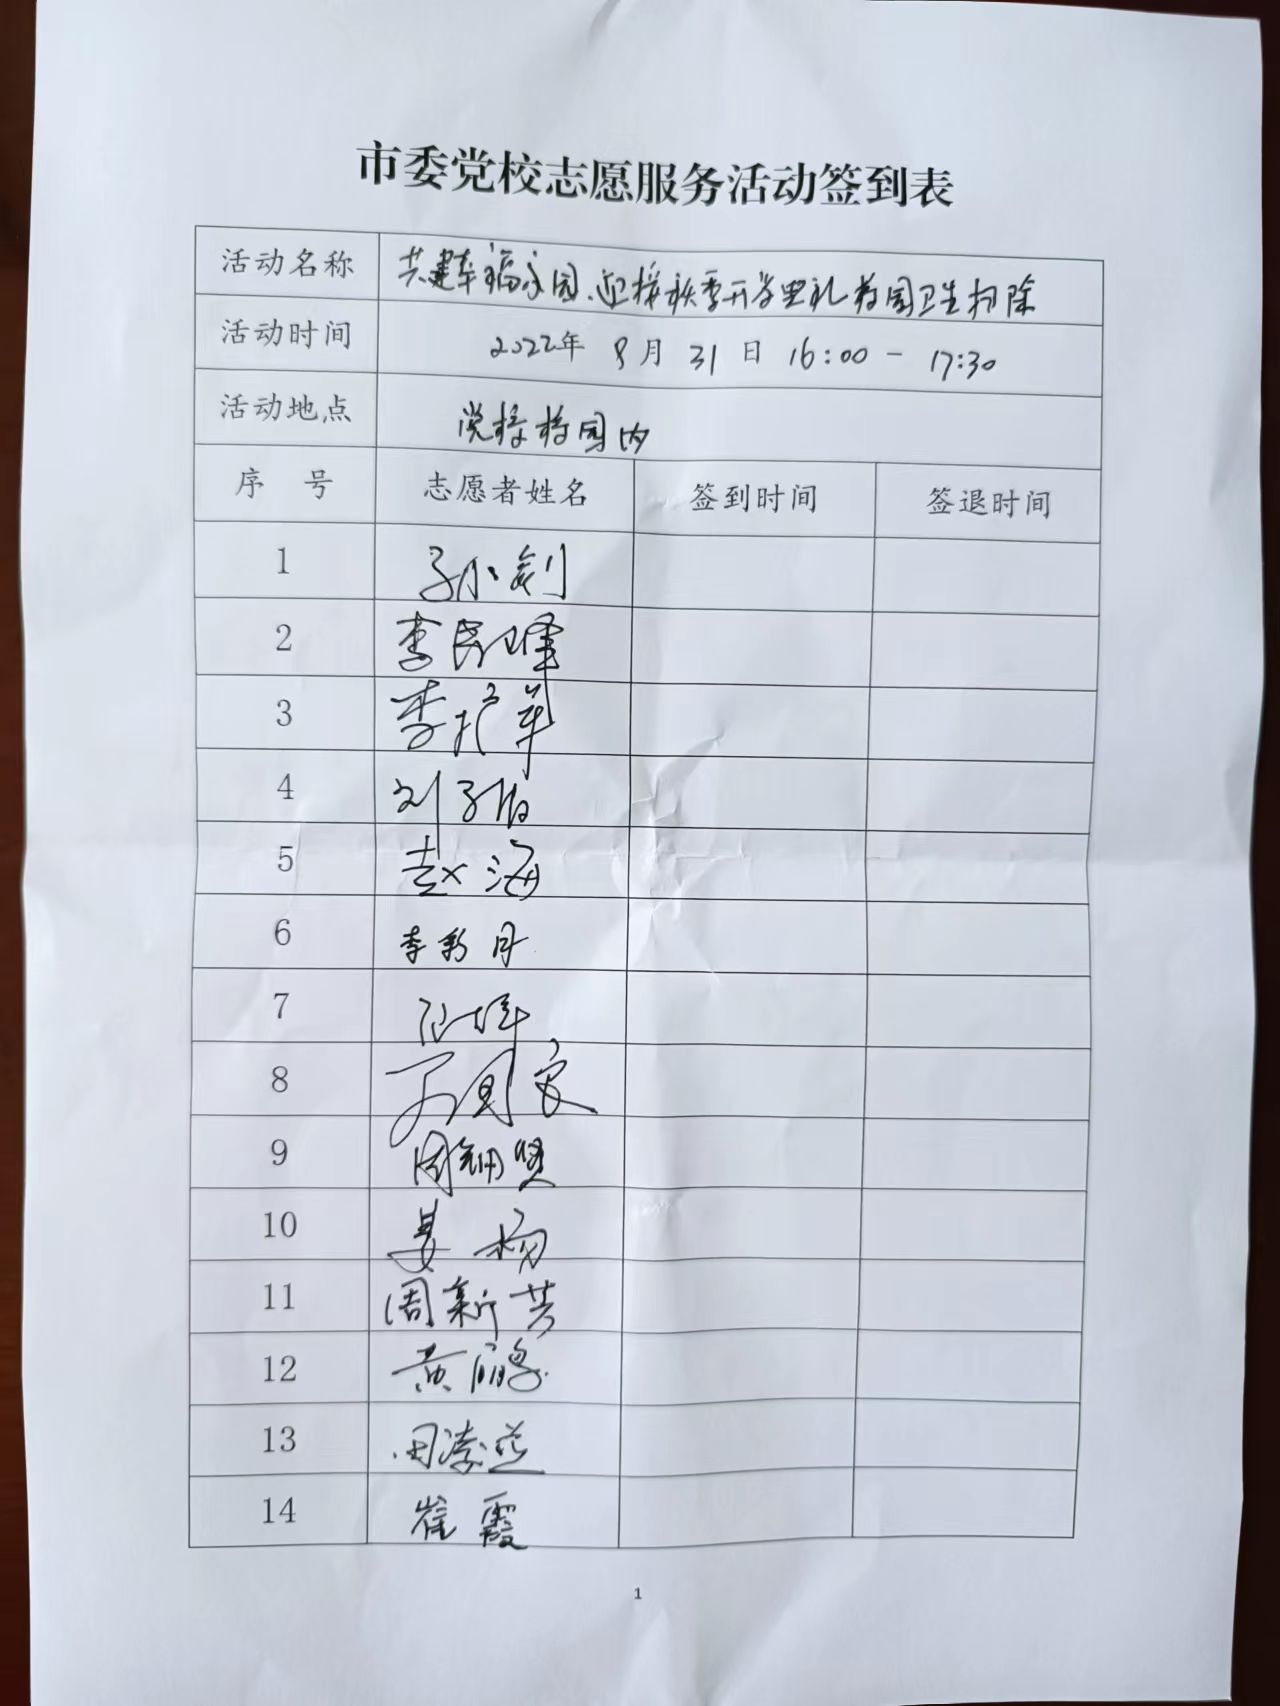 市委党校志愿服务活动签到表
活动名称 共建幸福家园、迎接秋季开学典礼校园卫生扫除
活动时间 2022年 8月 31日 16:00 - 17:30
活动地点 党校校园内
序 号 志愿者姓名 签到时间 签退时间
1 孙小剑
2 李民峰
3 李护军
4 刘子怡
5 赵海
6 李彩月
7
8
9 周钿贤
10 姜杨
11 周新芳
12 黄鹏
13 田李燕
14 崔霞
1